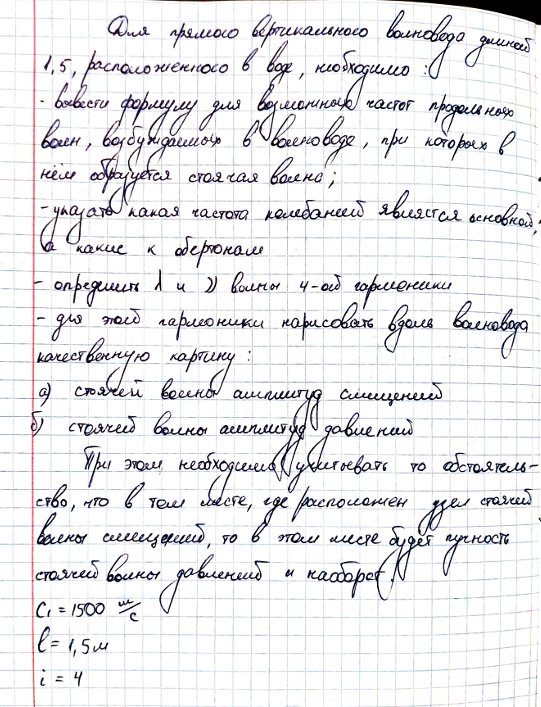 Для прямого вертикального волновода длиной
1,5, расположенного в воде, необходимо :
- вывести формулу для возможных частот продольных
волн, возбуждаемых в волноводе, при которых в
нём образуется стоячая волна;
- указать какая частота колебаний является основной,
а какие к обертонам
- определить λ и ν волны 4-ой гармоники
- для этой гармоники нарисовать вдоль волновода
качественную картину :
а) стоячей волны амплитуд смещений
б) стоячей волны амплитуд давлений
При этом необходимо учитывать то обстоятель-
ство, что в том месте, где расположен узел стоячей
волны смещений, то в этом месте будет пучность
стоячей волны давлений и наоборот.
C₁ = 1500 м/с
l = 1,5 м
i = 4